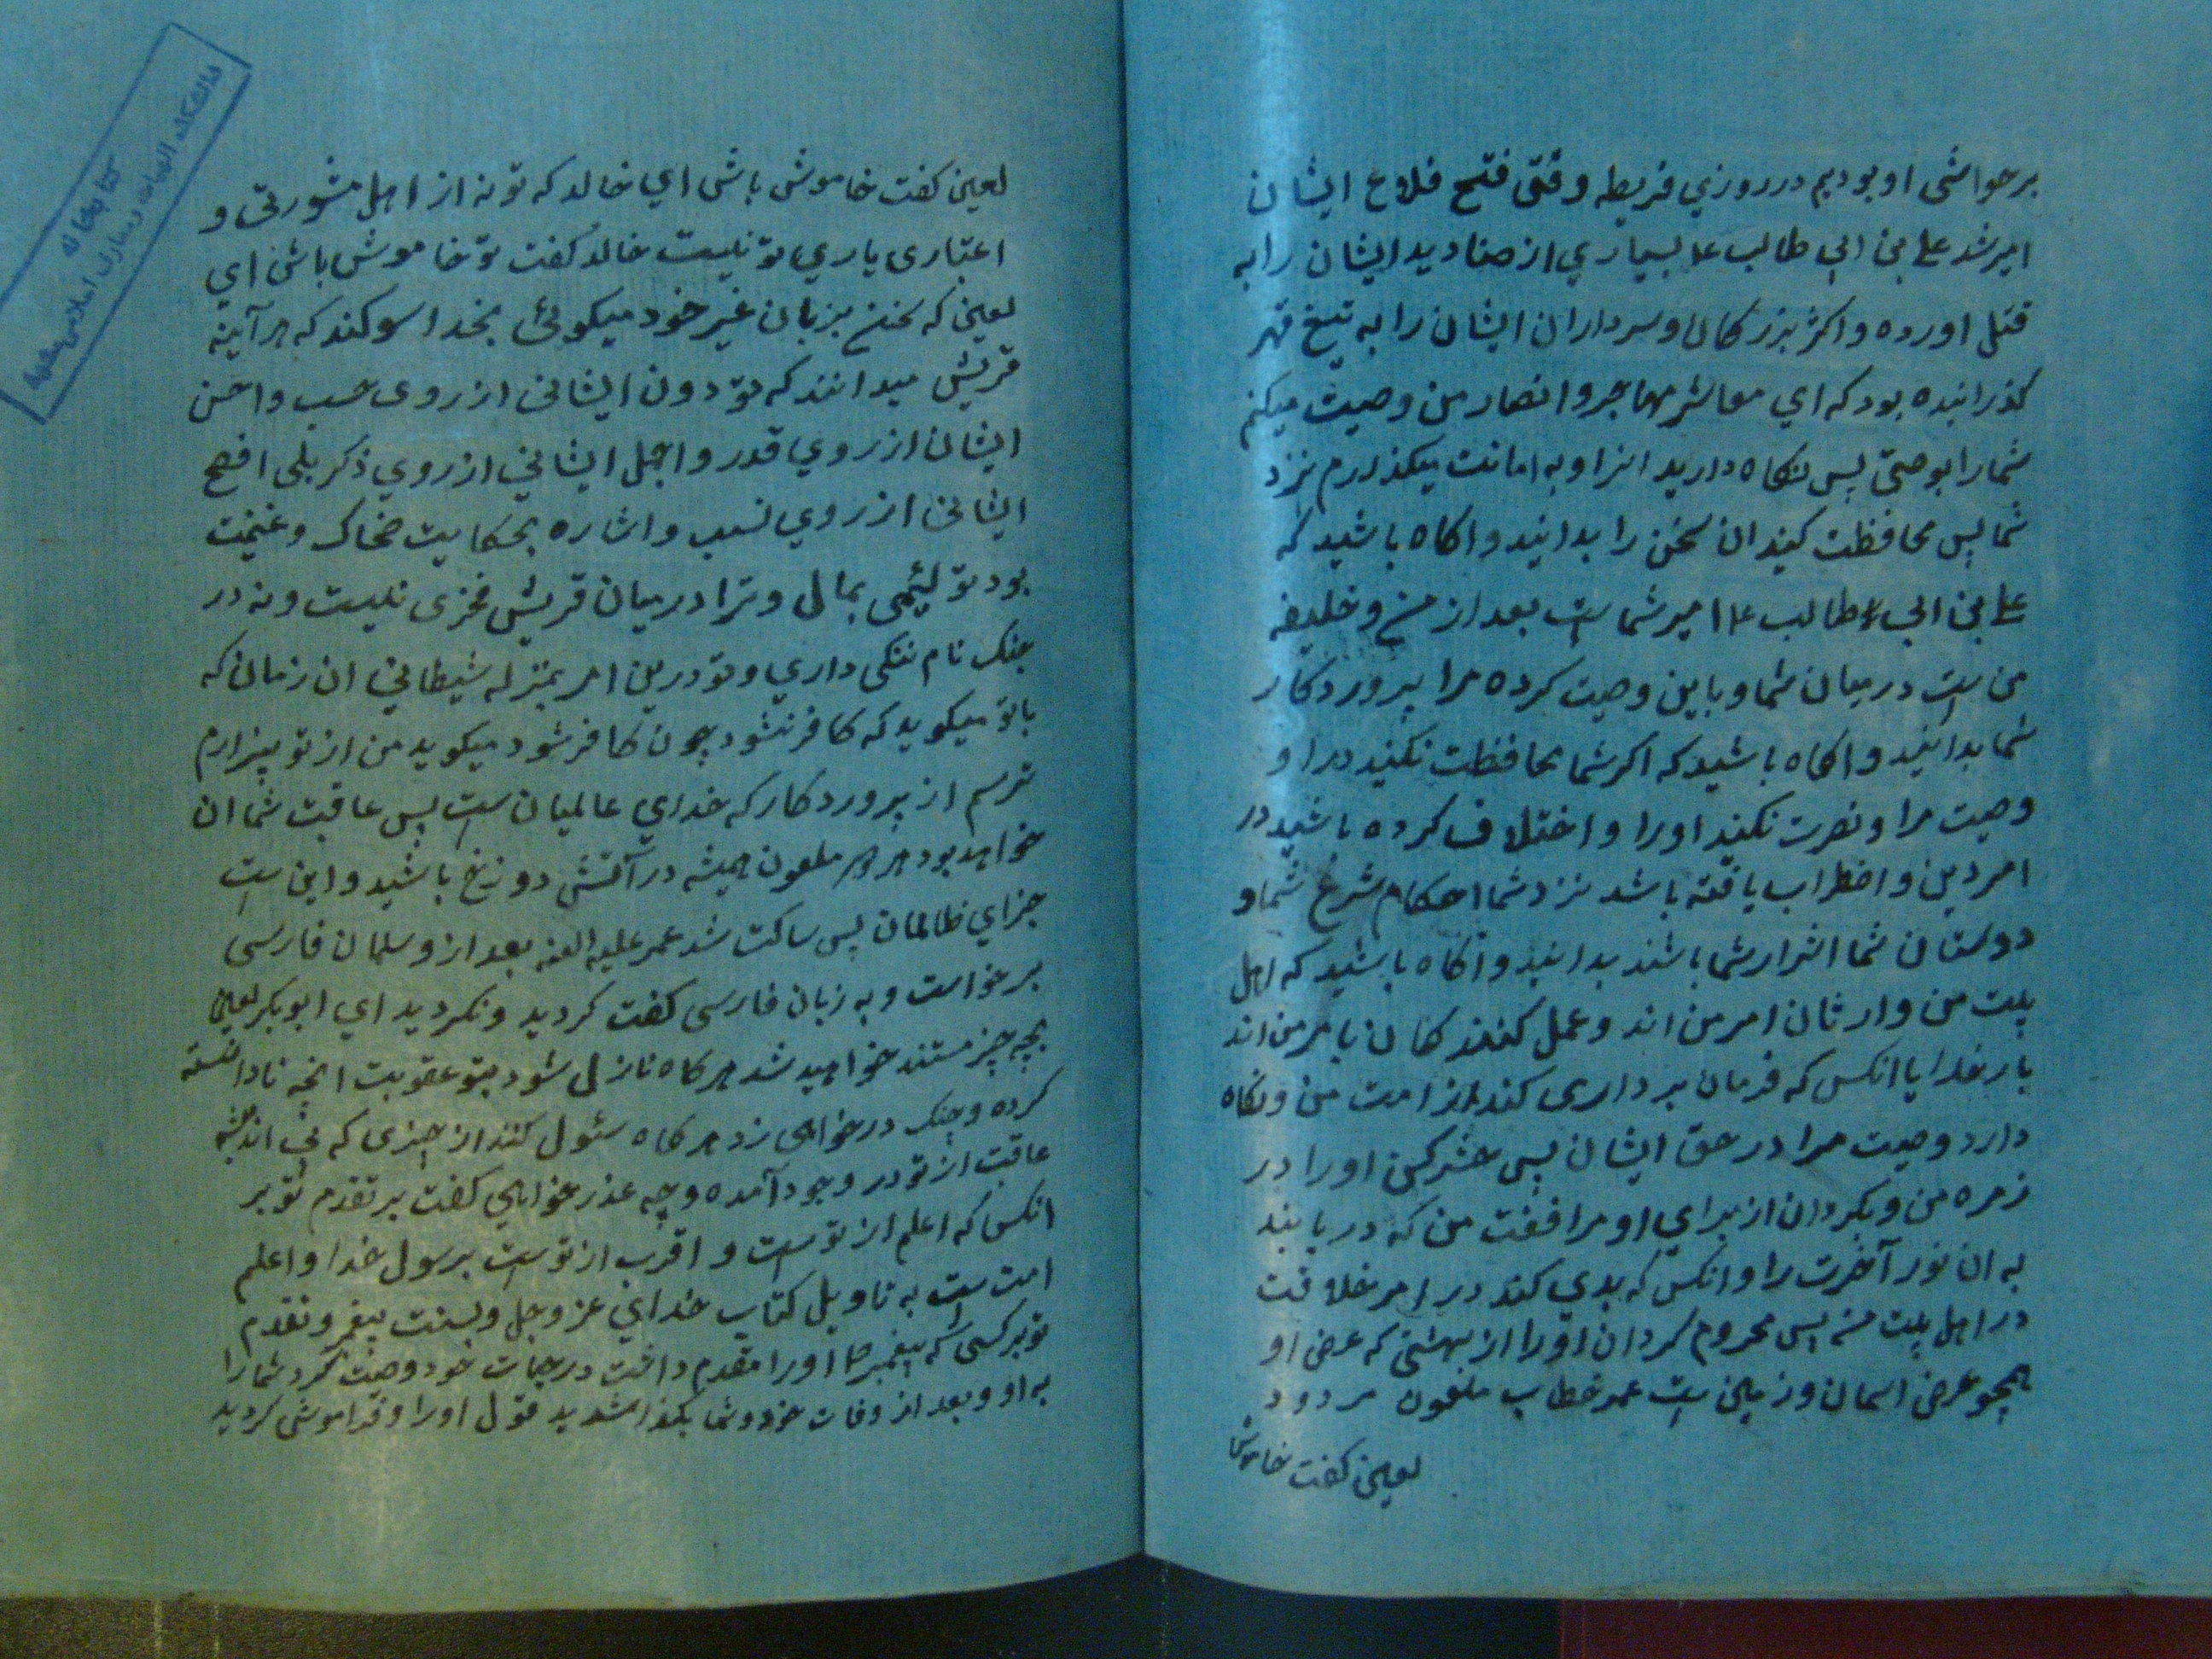 بر حواشی او بودیم در روزي قریطه وقتی فتح قلاع ایشان
امیر شد علی بن ابی طالب ع بسیاري از صنادید ایشان را به
قتل اورده و اکثر بزرکان و سرداران ایشان را به تیغ قهر
کذرانیده بود که اي معاشر مهاجر و انصار من وصیت میکنم
شما را بوصیتی پس نکاه دارید انرا و به امانت میکذارم نزد
شما پس محافظت کنید ان سخن را بدانید و اکاه باشید که
علی بن ابی طالب ع امیر شماست بعد از من و خلیفه
من است در میان شما و باین وصیت کرده مرا پروردکار
شما بدانید و اکاه باشید که اکر شما محافظت نکنید در او
وصیت مرا و نصرت نکنید او را و اختلاف کرده باشید در
امر دین و اضطراب یافته باشد نزد شما احکام شرع شما و
دوستان شما اشرار شما باشند بدانید و آکاه باشید که اهل
بیت من وارثان امر من اند و عمل کنندکان بامر من اند
بار خدایا انکس که فرمان برداری کند از امت من و نکاه
دارد وصیت مرا در حق ایشان پس حشر کن او را در
زمره من و بکردان از براي او مرافقت من که دریابند
به ان نور آخرت را و انکس که بدي کند در امر خلافت
در اهل بیت من پس محروم کردان او را از بهشتی که عرض او
همچو عرض اسمان و زمین است عمر خطاب ملعون مردود
لعین کفت خاموش
لعین کفت خاموش باش اي خالد که تو نه از اهل مشورتی و
اعتباری یاري تو نیست خالد کفت تو خاموش باش اي
لعین که سخن بزبان غیر خود میکوئی بخدا سوکند که هر آینه
قریش میدانند که تو دون ایشانی از روی حسب و احسن
ایشان از روي قدر و اجمل ایشاني از روي ذکر بلی افصح
ایشانی از روي نسب و اشاره بحکایت ضحاک و غنیمت
بود تو لئیمی بمال و ترا در میان قریش فخری نیست و نه در
جنک نام ننکی داري و تو درین امر بمنزله شیطاني ان زمان که
باتو میکوید که کافر نشود چون کافر شود میکوید من از تو بیزارم
ترسم از پروردکار که خداي عالمیان است پس عاقبت شما ان
خواهد بود هر دو ملعون همیشه در آتش دوزخ باشید و این است
جزاي ظالمان پس ساکت شد عمر علیه العنه بعد از و سلمان فارسی
برخواست و به زبان فارسی کفت کردید و نکردید اي ابوبکر لعین
بچه چیز مستند خواهید شد هر کاه نازل شود بتو عقوبت انچه نادانسته
کرده و چنک در خواهی زد هر کاه سئول کنند از چیزی که بی اندیشه
عاقبت از تو در وجود آمده و چه عذر خواهي کفت بر تقدم تو بر
انکس که اعلم از توست و اقرب از توست برسول خدا و اعلم
امت است به تاویل کتاب خداي عز و جل و بسنت پیغمبر و تقدم
تو بر کسی که پیغمبر ص او را مقدم داشت در حیات خود و وصیت کرد شما را
به او و بعد از وفات خود و شما بکذاشدید قول او را و فراموش کردید
کتابخانه
دانشکده الهیات و معارف اسلامی مشهد